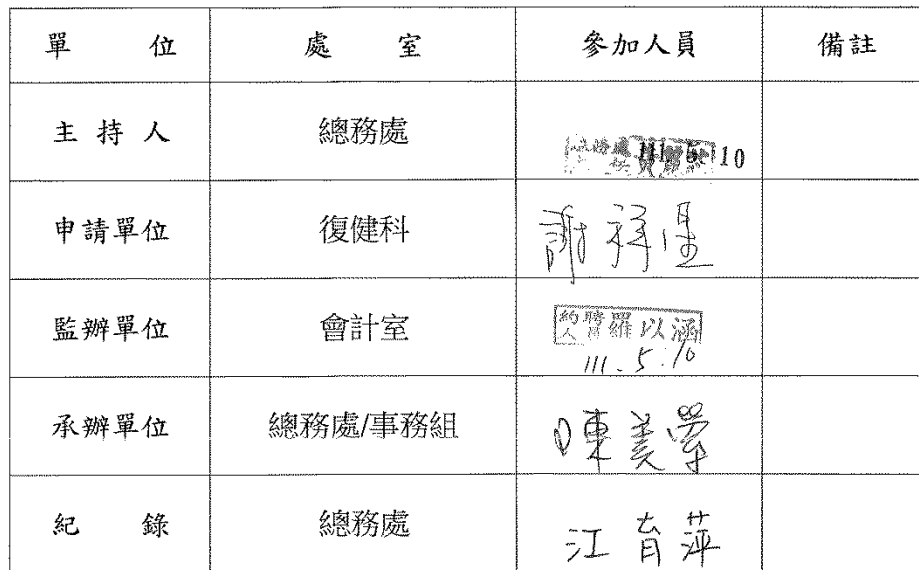 單 位 處 室 參加人員 備註
主 持 人 總務處 111. 5. 10
申請單位 復健科 謝祥
監辦單位 會計室 約聘人員 羅以涵
111.5.10
承辦單位 總務處/事務組 陳美
紀 錄 總務處 江育萍